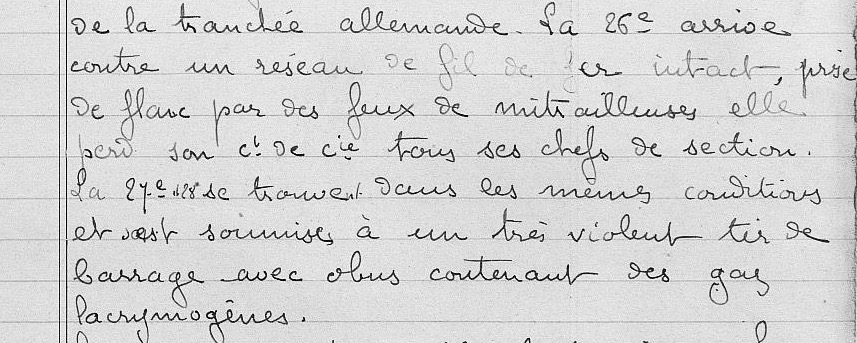 de la tranchée allemande. La 26e arrive
contre un réseau de fil de fer intact, prise
de flanc par des feux de mitrailleuses elle
perd son ct de cie tous ses chefs de section.
La 27e et 28e se trouvent dans les mêmes conditions
et sont soumises à un très violent tir de
barrage avec obus contenant des gaz
lacrymogènes.